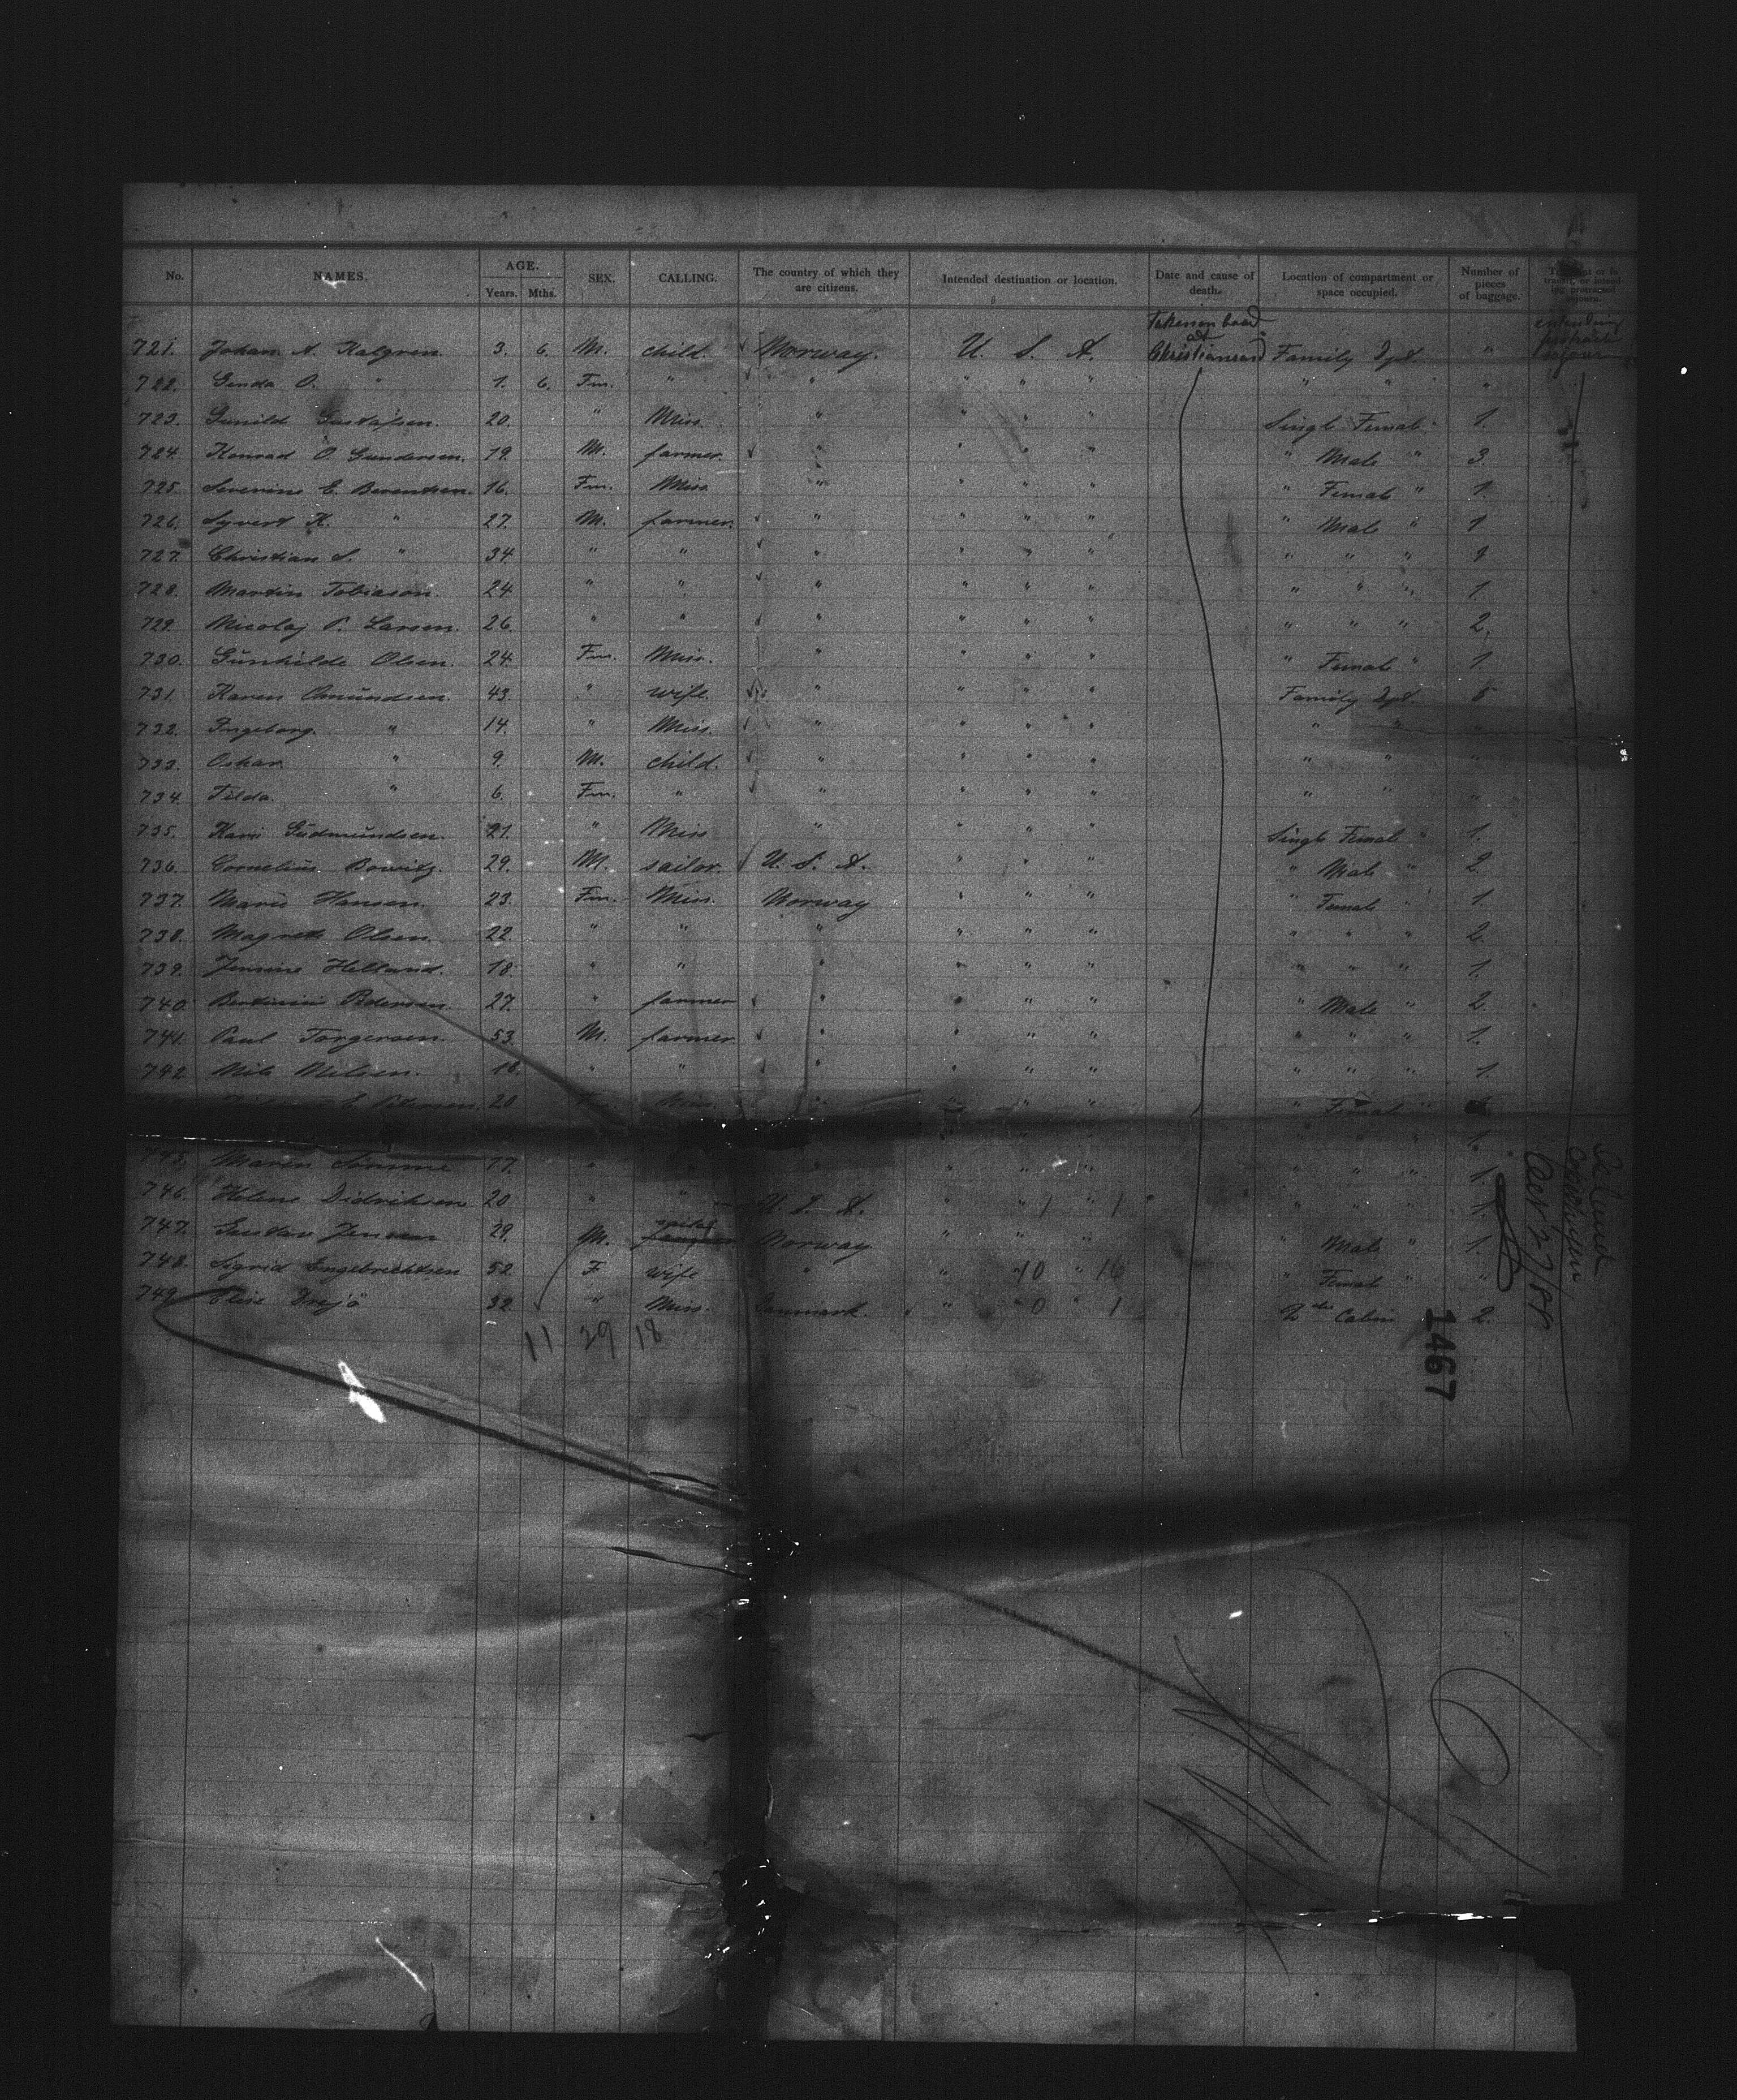 No. NAMES. AGE. Years. Mths. SEX. CALLING. The country of which they are citizens. Intended destination or location. Date and cause of death. Location of compartment or space occupied. Number of pieces of baggage.
Taken on board at Christiansand
721. Johan A. Kalgren. 3. 6. M. child. Norway. U. S. A. Family Dpt. "
722. Genda O. " 1. 6. Fm. " " " " " " " "
723. Gunild Gustafsen. 20. " Miss. " " " " Single Female " 1.
724. Konrad O. Gundersen. 19. M. farmer. " " " " " Male " 3.
725. Severine E. Berentsen. 16. Fm. Miss " " " " " Female " 1.
726. Syvert K. " 27. M. farmer. " " " " " Male " 1
727. Christian S. " 34. " " " " " " " " "
728. Martin Tobiason. 24. " " " " " " " " " 1.
729. Nicolaj P. Larsen. 26. " " " " " " " " " 2.
730. Gunhilde Olsen. 24. Fm. Miss. " " " " " Female " 1.
731. Karen Amundsen. 43. " wife. " " " " Family Dpt. 5
732. Ingeborg. " 14. " Miss. " " " " " " "
733. Oskar. " 9. M. child. " " " " " " "
734. Tilda. " 6. Fm. " " " " " " " "
735. Kari Gudmundsen. 21. " Miss " " " " Single Female " 1.
736. Cornelius 29. M. sailor. U. S. A. " " " " Male " 2.
737. Marie Hansen. 23. Fm. Miss. Norway " " " " Female " 1.
738. Magrete Olsen. 22. " " " " " " " " " 2.
739. Jensine Helland. 18. " " " " " " " " " 1.
740. Pedersen. 27. " farmer " " " " " Male " 2.
741. Paul Torgersen. 53. M. farmer. " " " " " " " 1.
742. Nils Nilsen. 18. " " " " " " " " " 1.
E. Petersen. 20 Fm. Miss " " " " " Female "
" " " 1.
745. Maren 17. " " " " " " " " " 1.
746. Helene Didriksen 20 " " U. S. A. " " " " " " 1.
747. Gustav Jensen 29. M. Norway " " " " Male " 1.
748. Sigrid Engebrechtsen 52. F wife " " " 10 " 16 " Female " "
749. Elise Drejö 32. " Miss. Danmark. " " 0 " 1 2nd Cabin 2.
11 29 18
Island
Copenhagen,
Oct 27/88
1467